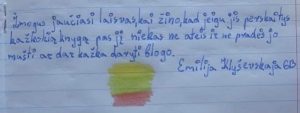 žmogus jaučiasi laisvas, kai žino, kad jeigu jis perskaitys
kažkokią knygą pas jį niekas ne ateis ir ne pradės jo
mušti ar dar kažką daryti blogo.
Emilija Klyševskaja 6B